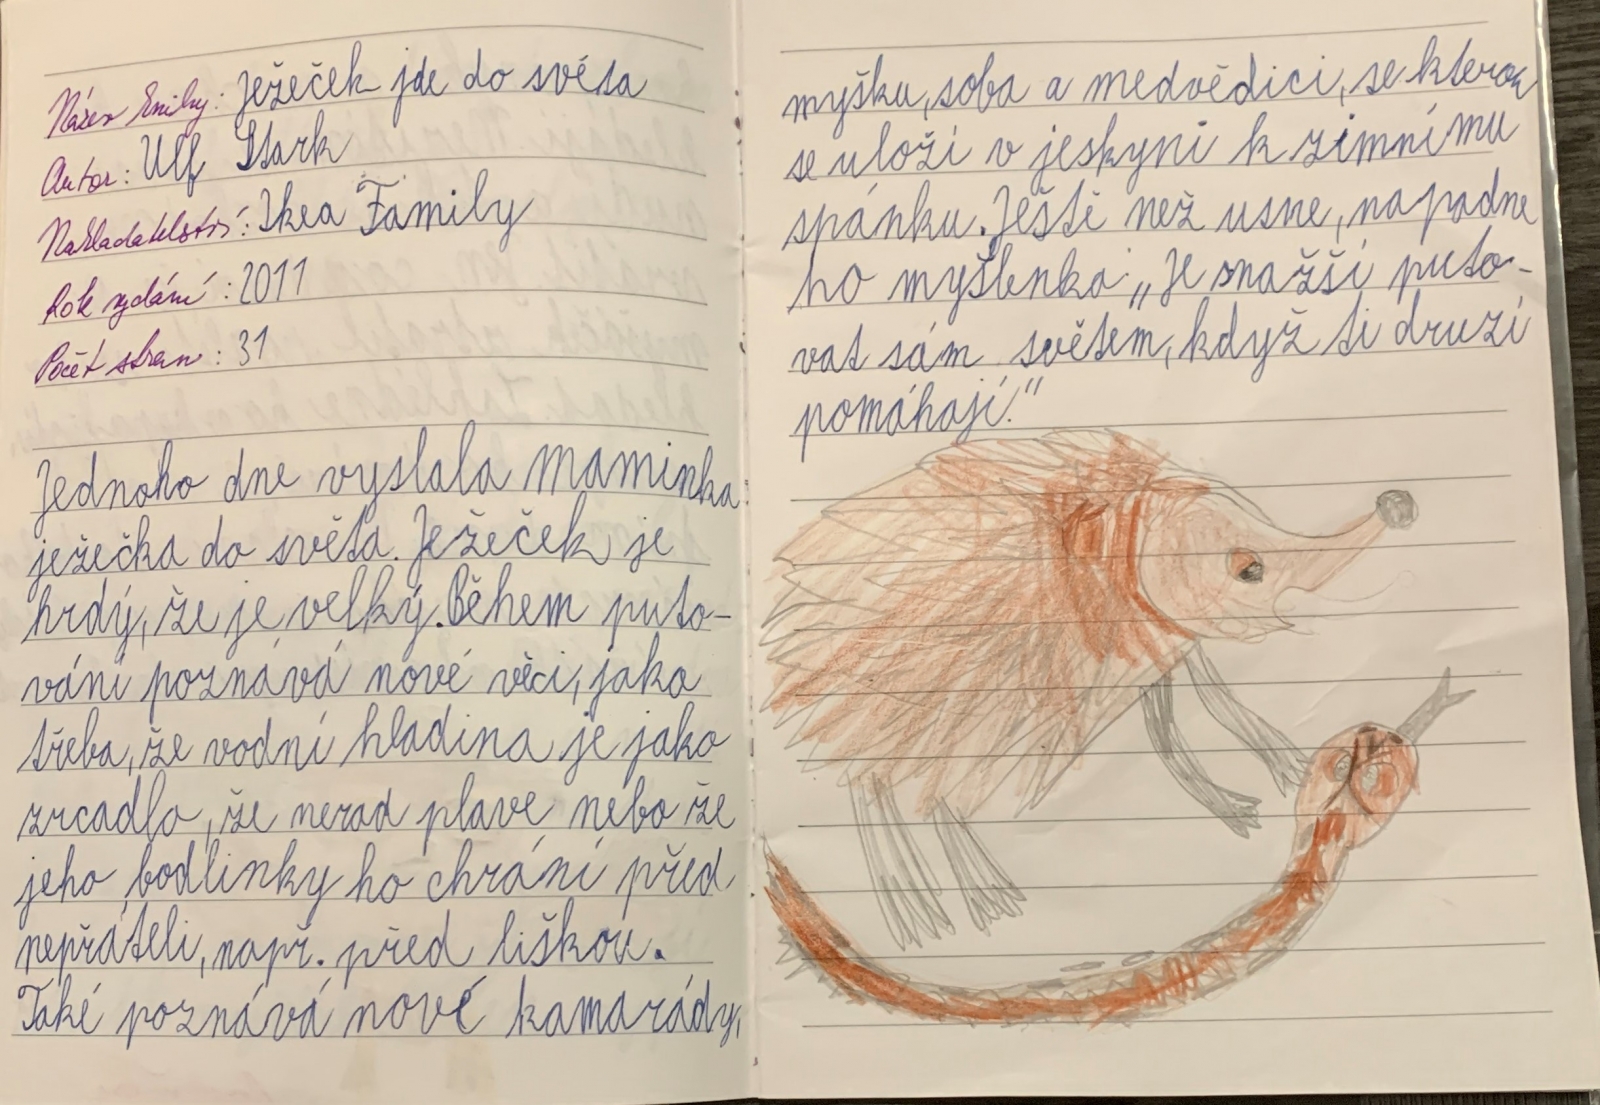 Název knihy: Ježeček jde do světa
Autor: Ulf Stark
Nakladatelství: Ikea Family
Rok vydání: 2011
Počet stran: 31
Jednoho dne vyslala maminka
ježečka do světa. Ježeček je
hrdý, že je velký. Během puto-
vání poznává nové věci, jako
třeba, že vodní hladina je jako
zrcadlo, že nerad plave nebo že
jeho bodlinky ho chrání před
nepřáteli, např. před liškou.
Také poznává nové kamarády,
myšku, soba a medvědici, se kterou
se uloží v jeskyni k zimnímu
spánku. Ještě než usne, napadne
ho myšlenka „Je snažší puto-
vat sám světem, když ti druzí
pomáhají.“